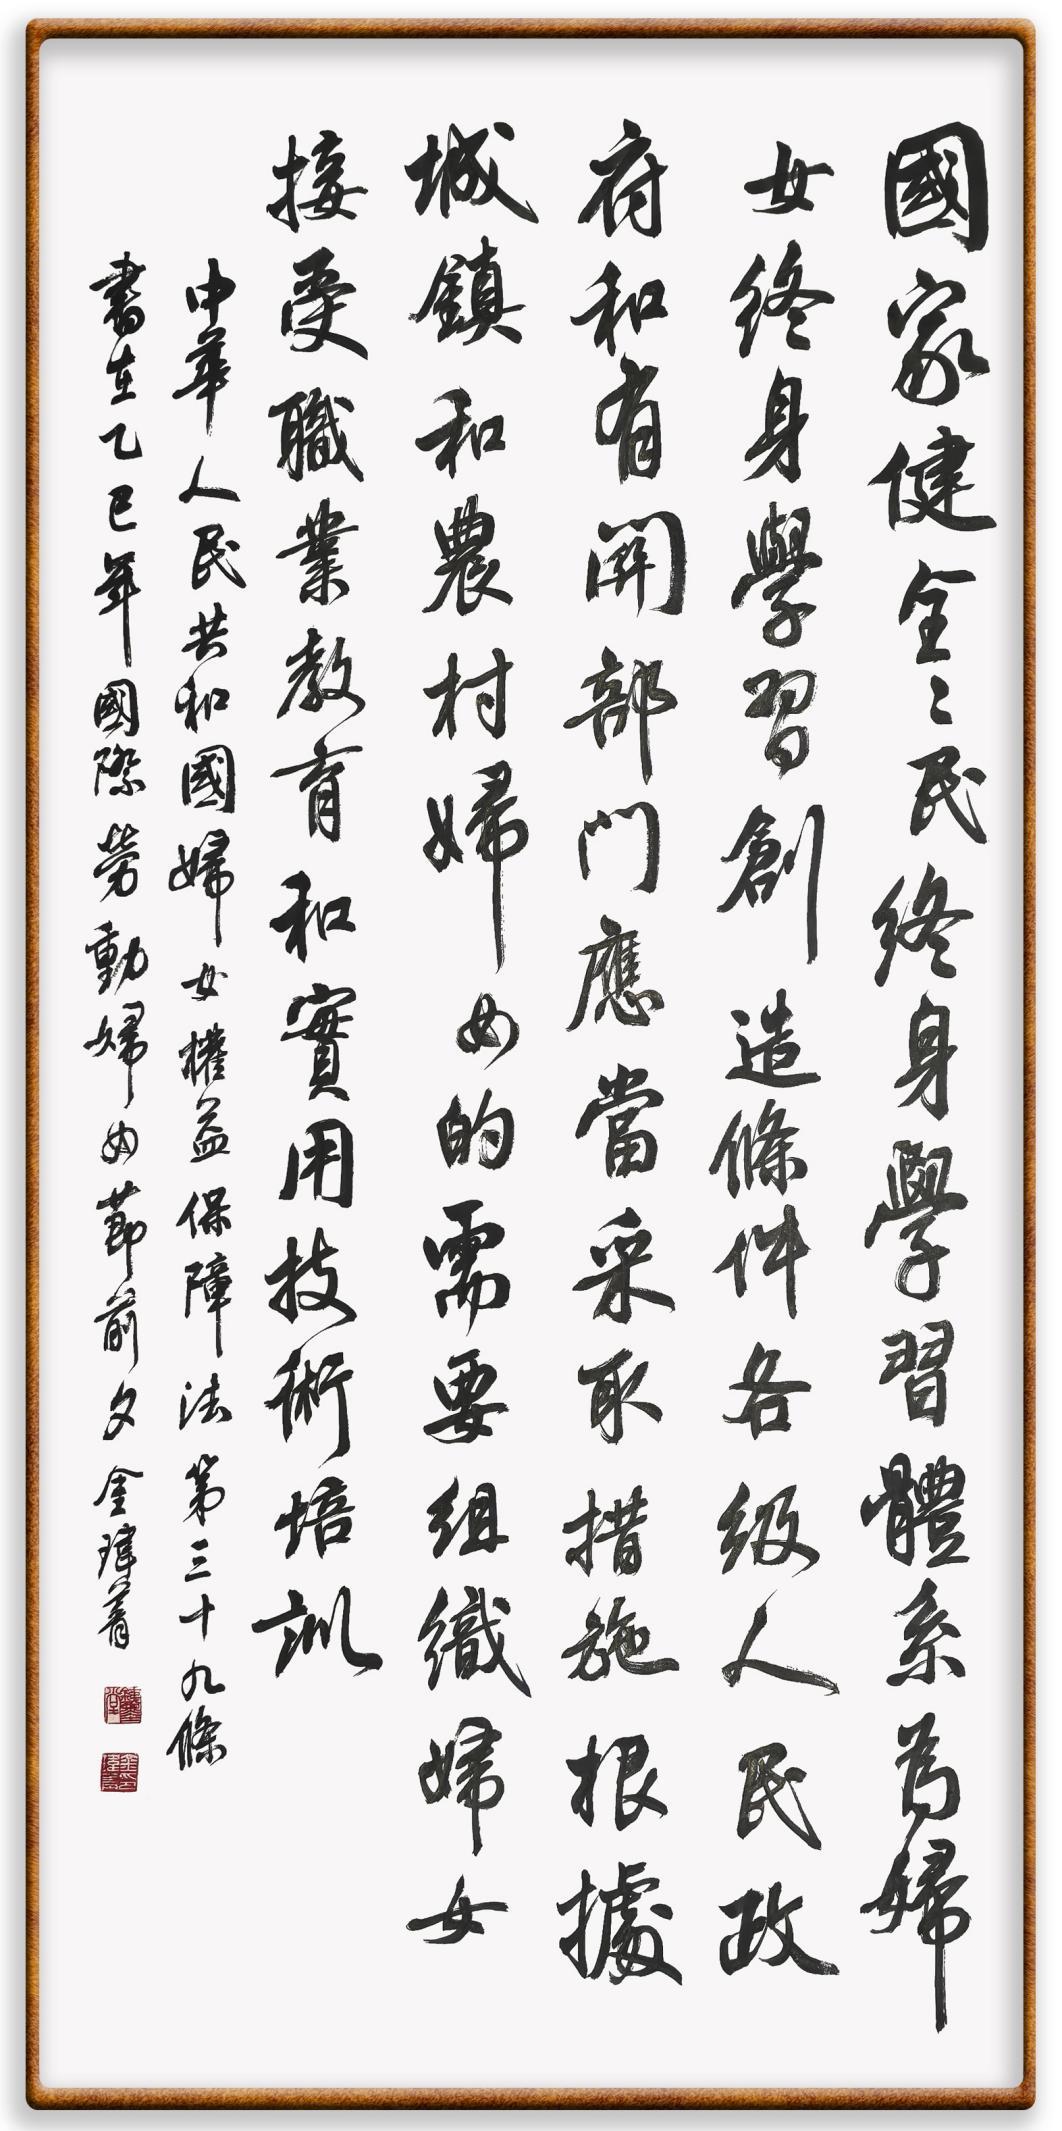 國家健全〻民終身學習體系為婦
女終身學習創造條件各級人民政
府和有關部門應當采取措施根據
城鎮和農村婦女的需要組織婦女
接受職業教育和實用技術培訓
中華人民共和國婦女權益保障法第三十九條
書在乙巳年國際勞動婦女節前夕金瑋菁